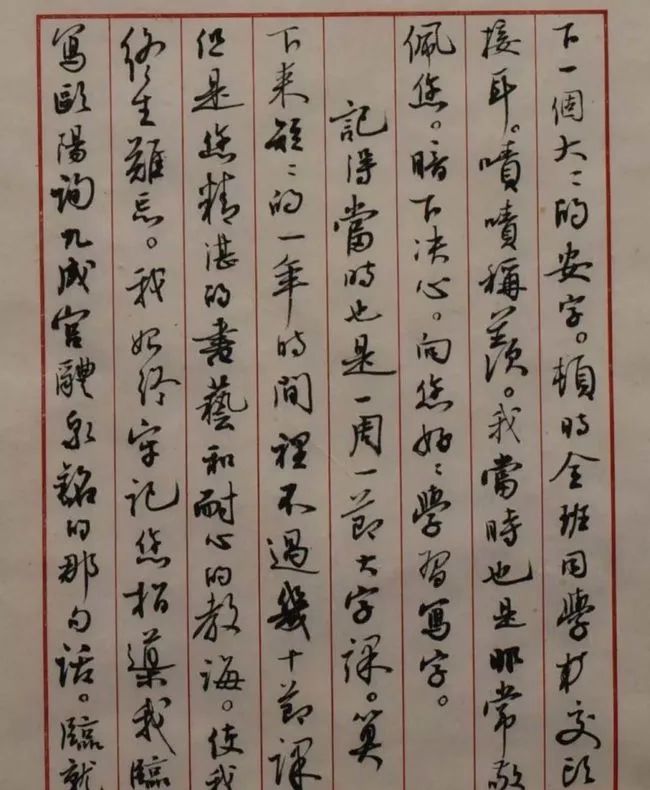 下一個大〻的安字。頓時全班同學都交頭
接耳。嘖嘖稱羨。我當時也是非常敬
佩您。暗下决心。向您好〻學習寫字。
記得當時也是一周一節大字課。算
下來短〻的一年時間裡不過幾十節課
但是您精湛的書藝和耐心的教誨。使我
終生難忘。我始終牢記您指導我臨
寫歐陽詢九成宮醴泉銘的那句話。臨就